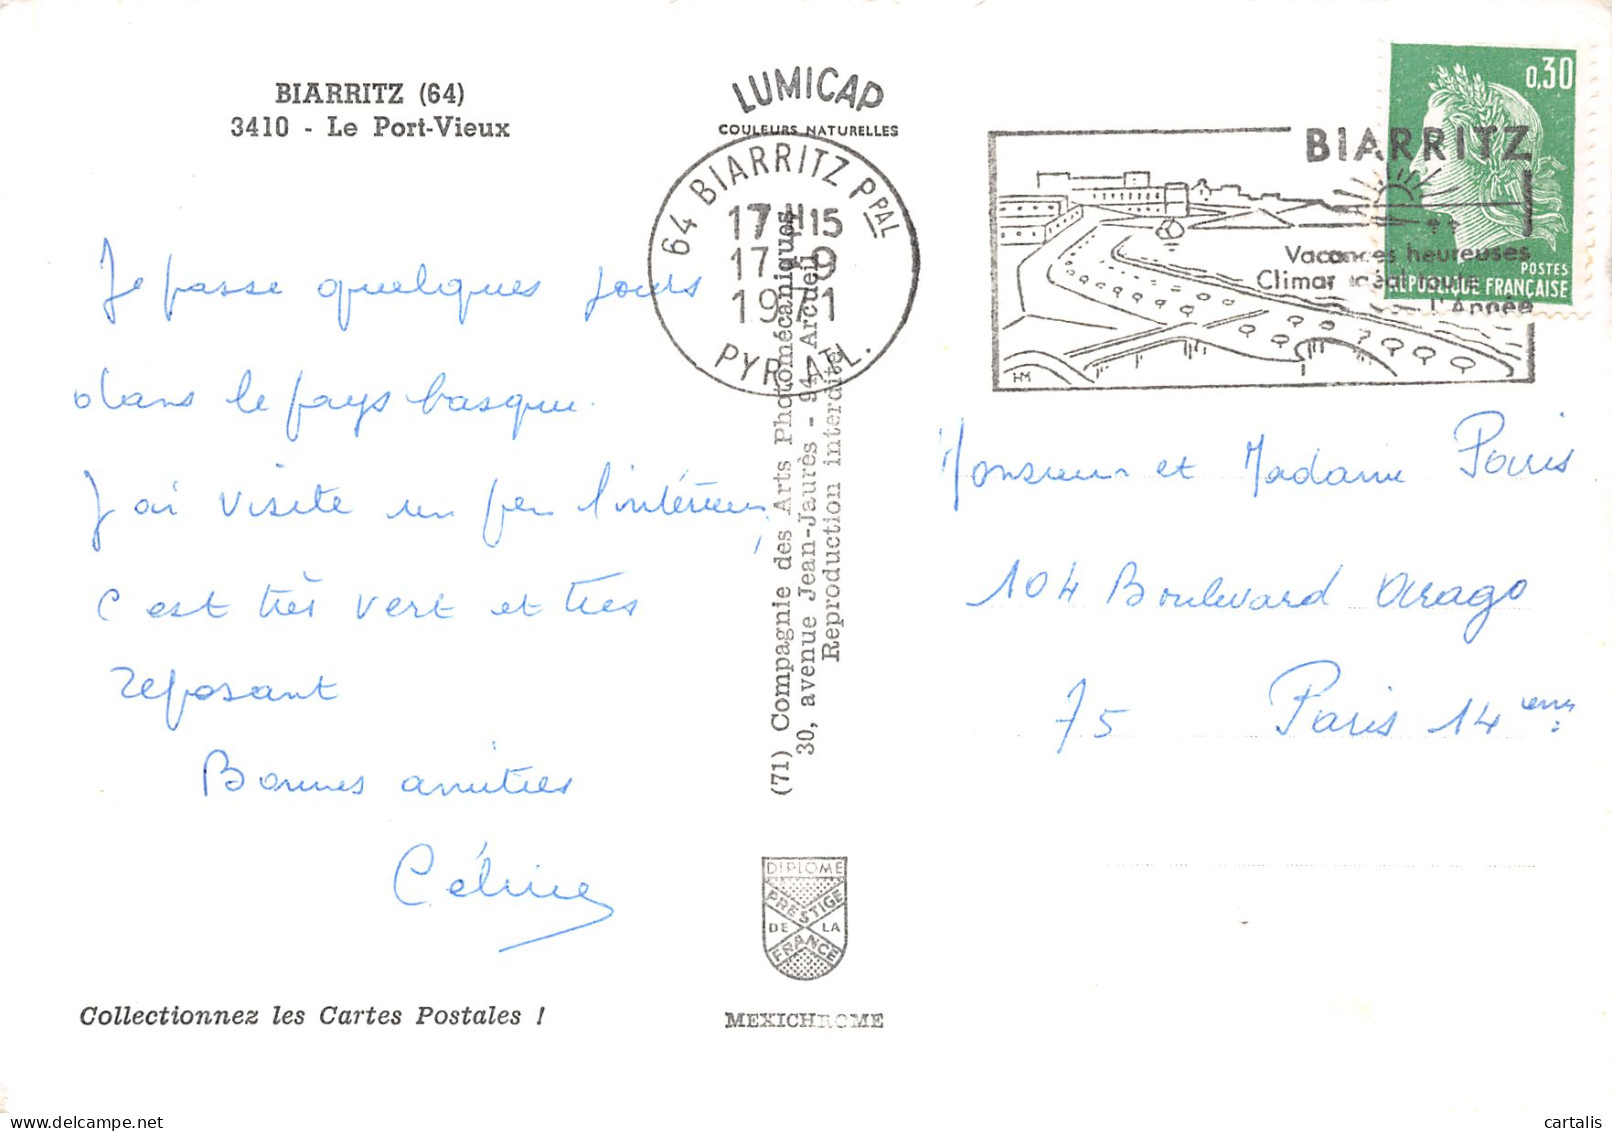 BIARRITZ (64)
3410 - Le Port-Vieux
Je passe quelques jours
dans le pays basque.
J'ai visité un peu l'intérieur,
c'est très vert et très
reposant
Bonnes amitiés
Céline
Collectionnez les Cartes Postales !
LUMICAP
COULEURS NATURELLES
64 BIARRITZ PPAL
17H15
17-9
1971
PYR. ATL.
(71) Compagnie des Arts Photomécaniques
30, avenue Jean-Jaurès - 94 Arcueil
Reproduction interdite
DIPLOME
PRESTIGE
DE LA
FRANCE
MEXICHROME
BIARRITZ
Vacances heureuses
Climat idéal toute
l'Année
HM
0,30
POSTES
RÉPUBLIQUE FRANÇAISE
Monsieur et Madame Paris
104 Boulevard Arago
75 Paris 14ème
cartalis